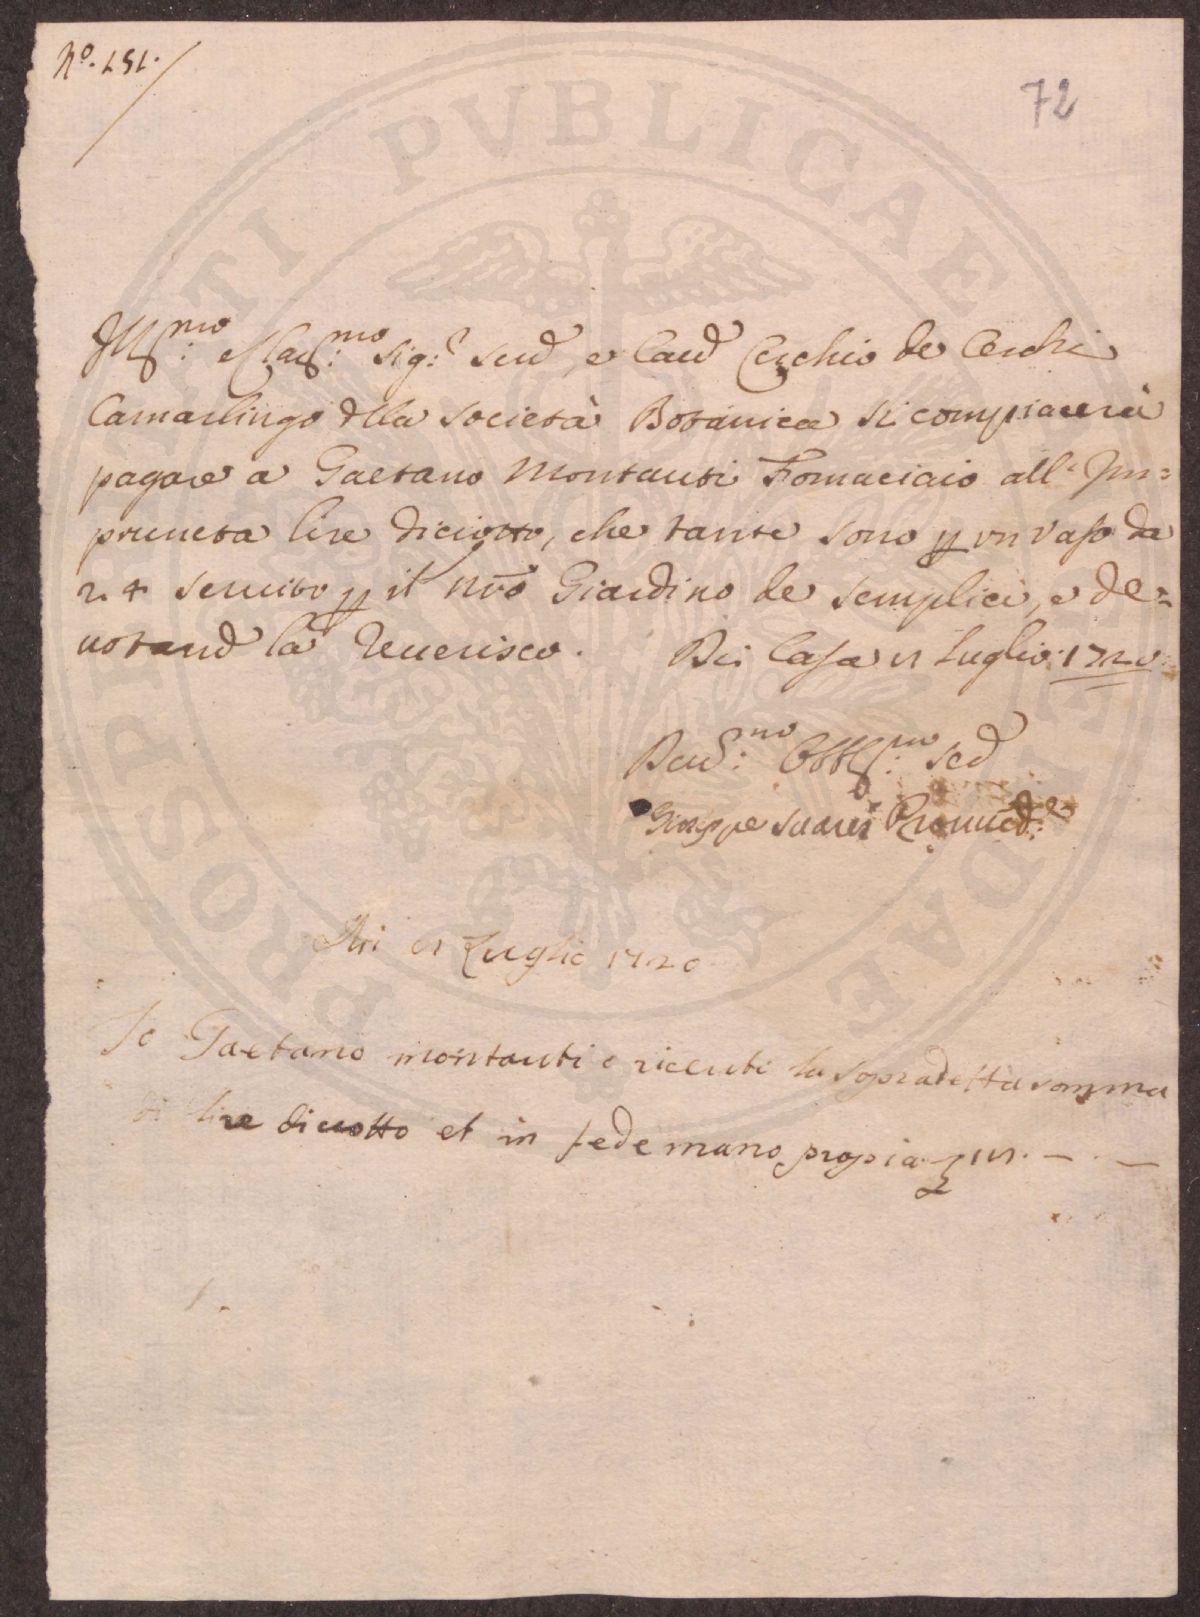 Nº. 151.
72
PROSPERITATI PVBLICAE REDACTAE
Ill:mo e Clar:mo Sig:r Send, e Cand Cerchio de Cerchi
Camarlingo dlla Società Botanica si compiacerà
pagare a Gaetano Montauti Fornaciaio all' Im=
pruneta lire diciotto, che tante sono p un Vaso da
servito p il nro Giardino de semplici, e de=
votand la reverisco. Di Casa Luglio 1720
Devd:mo Obbl:mo sed
Giuseppe Suarei
Adi Luglio 1720
Io Gaetano montauti o riceuti la sopradetta somma
di lire diciotto et in fede mano propia